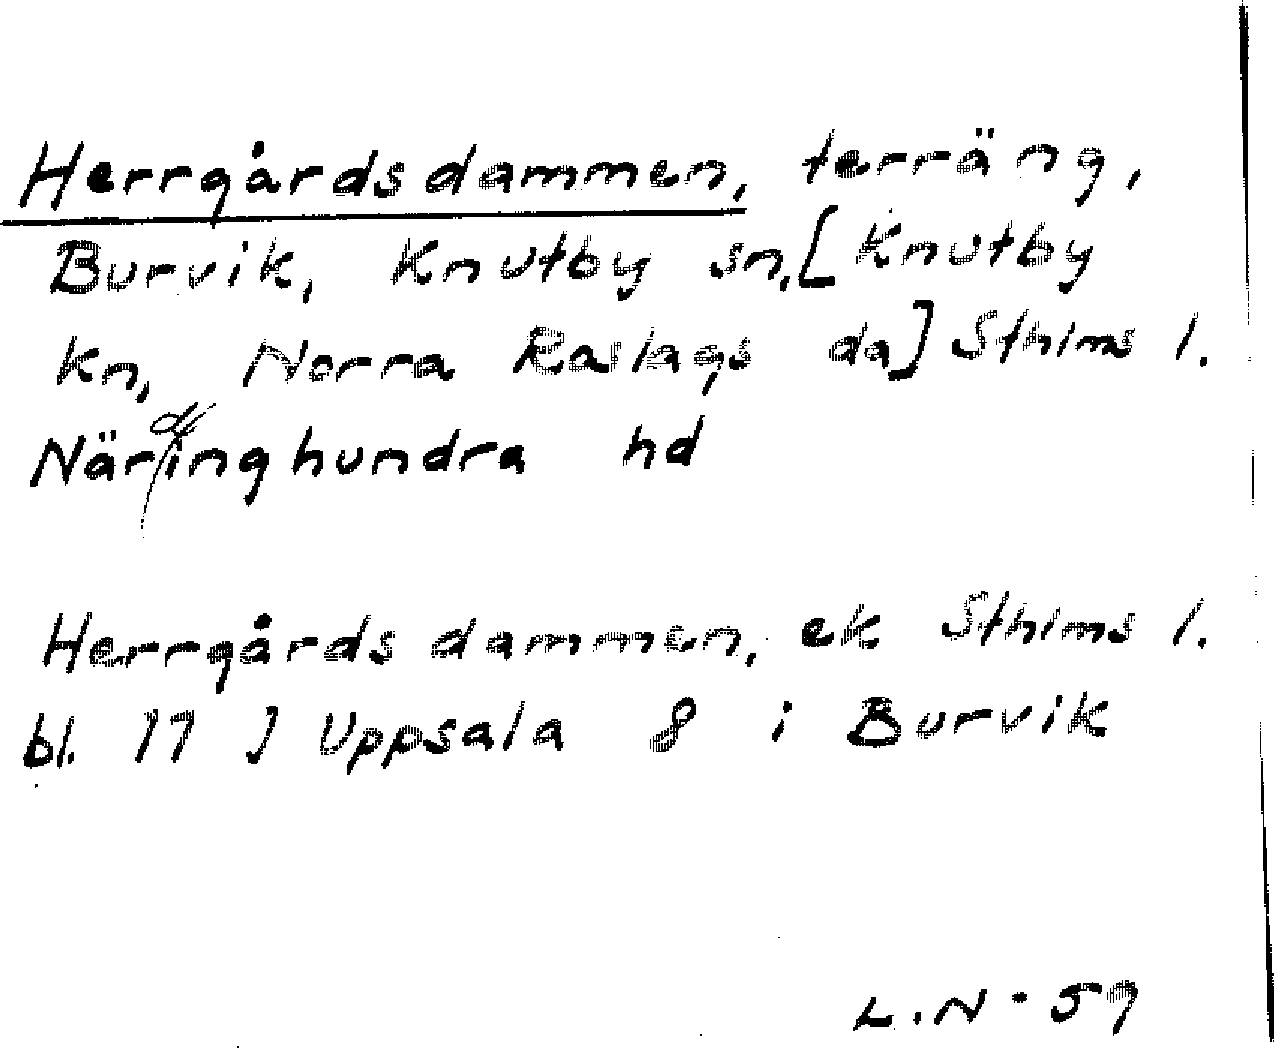 Herrgårdsdammen, terräng,
Burvik, Knutby sn, [Knutby
kn, Norra Roslags da] Sthlms l.
Närdinghundra hd
Herrgårdsdammen, ek Sthlms l.
bl. 17 J Uppsala 8 i Burvik
L.N - 59